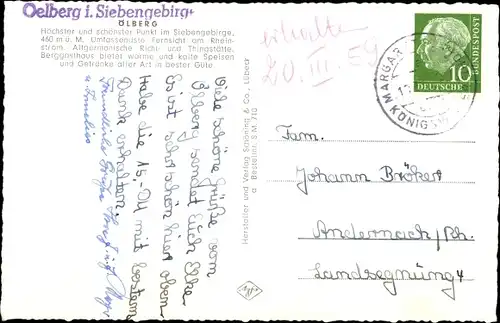 Oelberg i. Siebengebirge
ÖLBERG
Höchster und schönster Punkt im Siebengebirge,
460 m ü. M. Umfassendste Fernsicht am Rhein-
strom. Altgermanische Richt- und Thingstätte.
Berggasthaus bietet warme und kalte Speisen
und Getränke aller Art in bester Güte
erhalten
20. III. 59
MARGAR
KÖNIGS
10
DEUTSCHE
Viele schöne Grüße vom
Ölberg sendet Euch
Es ist sehr schön hier oben.
Habe die 15,- DM mit bestem
Dank erhalten.
Freundliche Grüße
u. Annelise
Hersteller und Verlag Schöning & Co., Lübeck
Bestellnr. S.M. 710
Fam.
Johann Brökert
Andernach/Rh.
Landsegnung 4